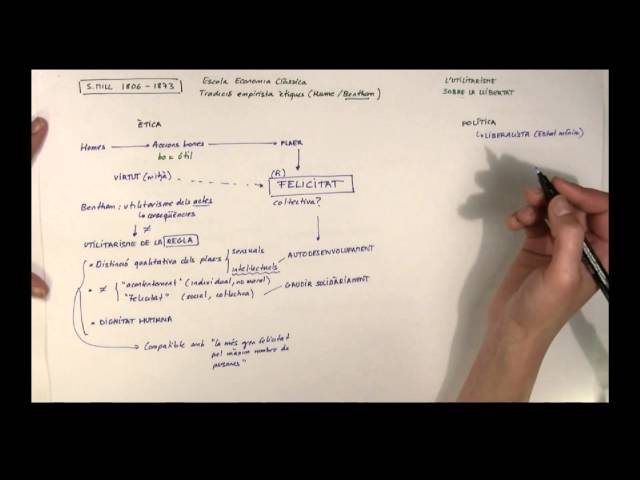 S.MILL 1806 - 1873
Escola Economia Clàssica
Tradició empirista ètiques (Hume / Bentham)
L'UTILITARISME
SOBRE LA LLIBERTAT
ÈTICA
Homes → Accions bones → PLAER
bo = útil
VIRTUT (mitjà)
(R)
FELICITAT
col·lectiva?
Bentham: utilitarisme dels actes
↳ conseqüències
≠
UTILITARISME DE LA REGLA
• Distinció qualitativa dels plaers
sensuals
intel·lectuals
AUTODESENVOLUPAMENT
• ≠
"acontentament" (individual, no moral)
"Felicitat" (social, col·lectiva)
GAUDIR SOLIDÀRIAMENT
• DIGNITAT HUMANA
Compatible amb "la més gran felicitat
pel màxim nombre de
persones"
POLÍTICA
↳ LIBERALISTA (Estat mínim)